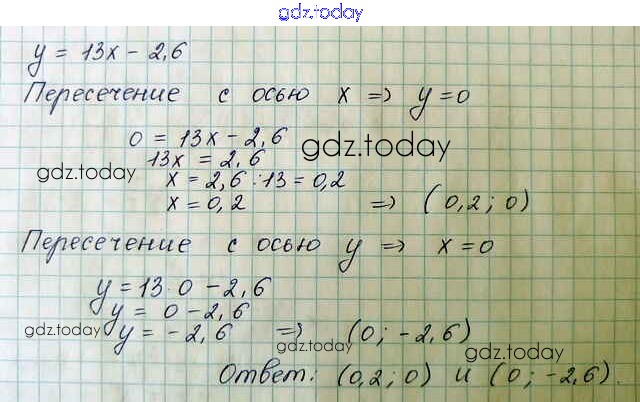 gdz.today
y = 13x - 2,6
Пересечение с осью x => y=0
0 = 13x - 2,6
gdz.today
13x = 2,6
gdz.today
x = 2,6 : 13 = 0,2
x = 0,2 => (0,2 ; 0)
Пересечение с осью y => x = 0
y = 13·0 - 2,6
y = 0 - 2,6
gdz.today
y = -2,6 => (0; -2,6)
gdz.today
gdz.today
Ответ: (0,2 ; 0) и (0; -2,6).